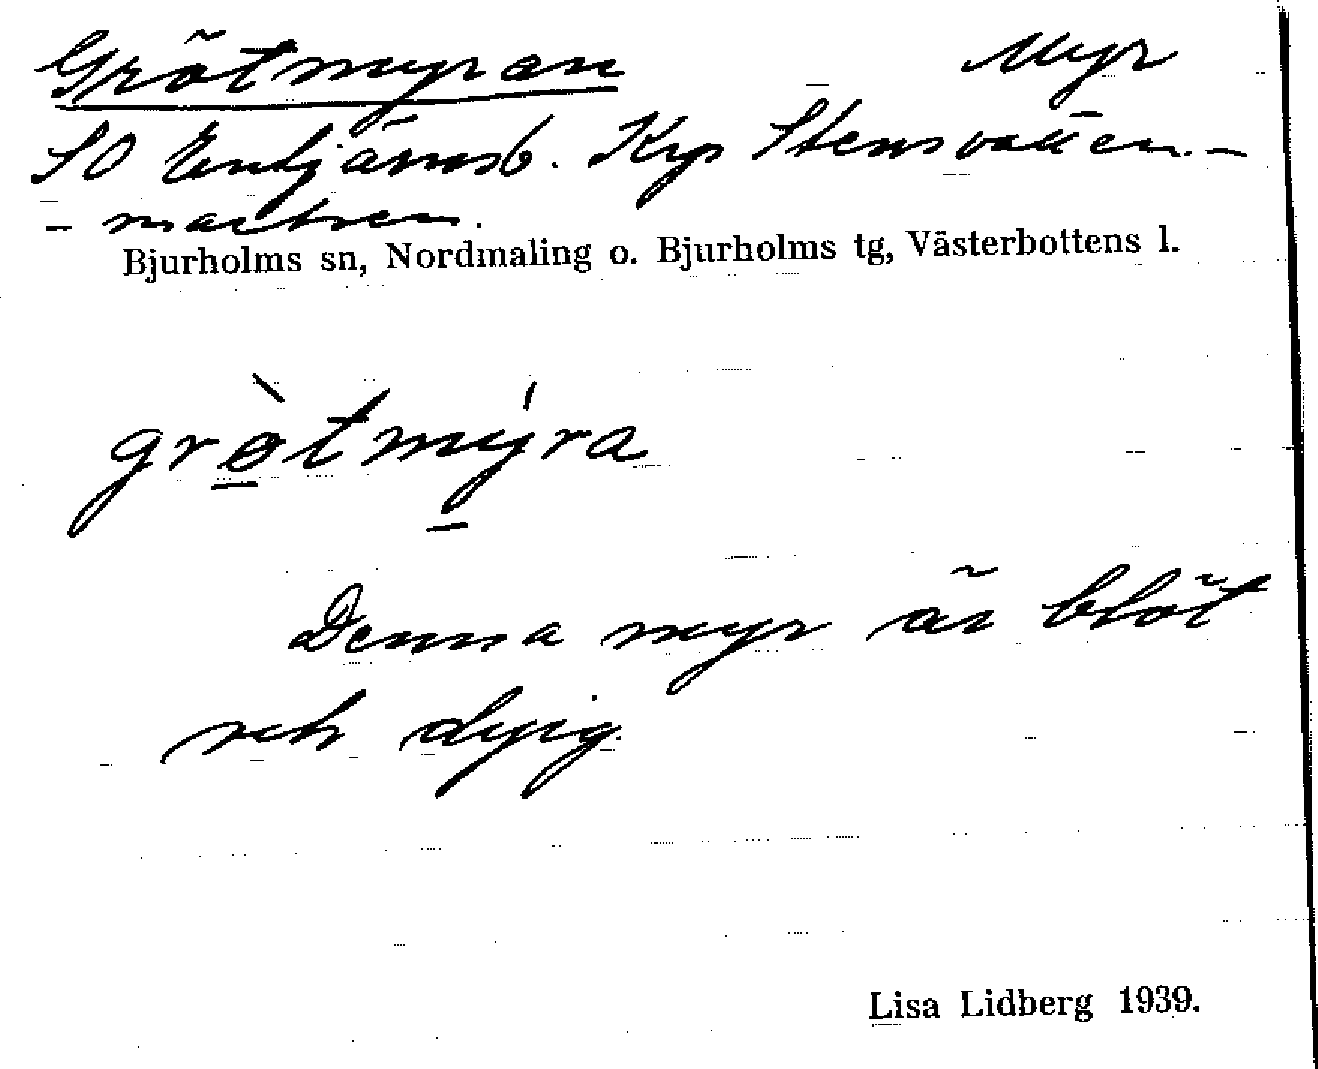 Grötmyran Myr
SO Entjärnsb. Krp Stensvatten-
-marken.
Bjurholms sn, Nordmaling o. Bjurholms tg, Västerbottens l.
grø̀tmýra
Denna myr är blöt
och dyig.
Lisa Lidberg 1939.